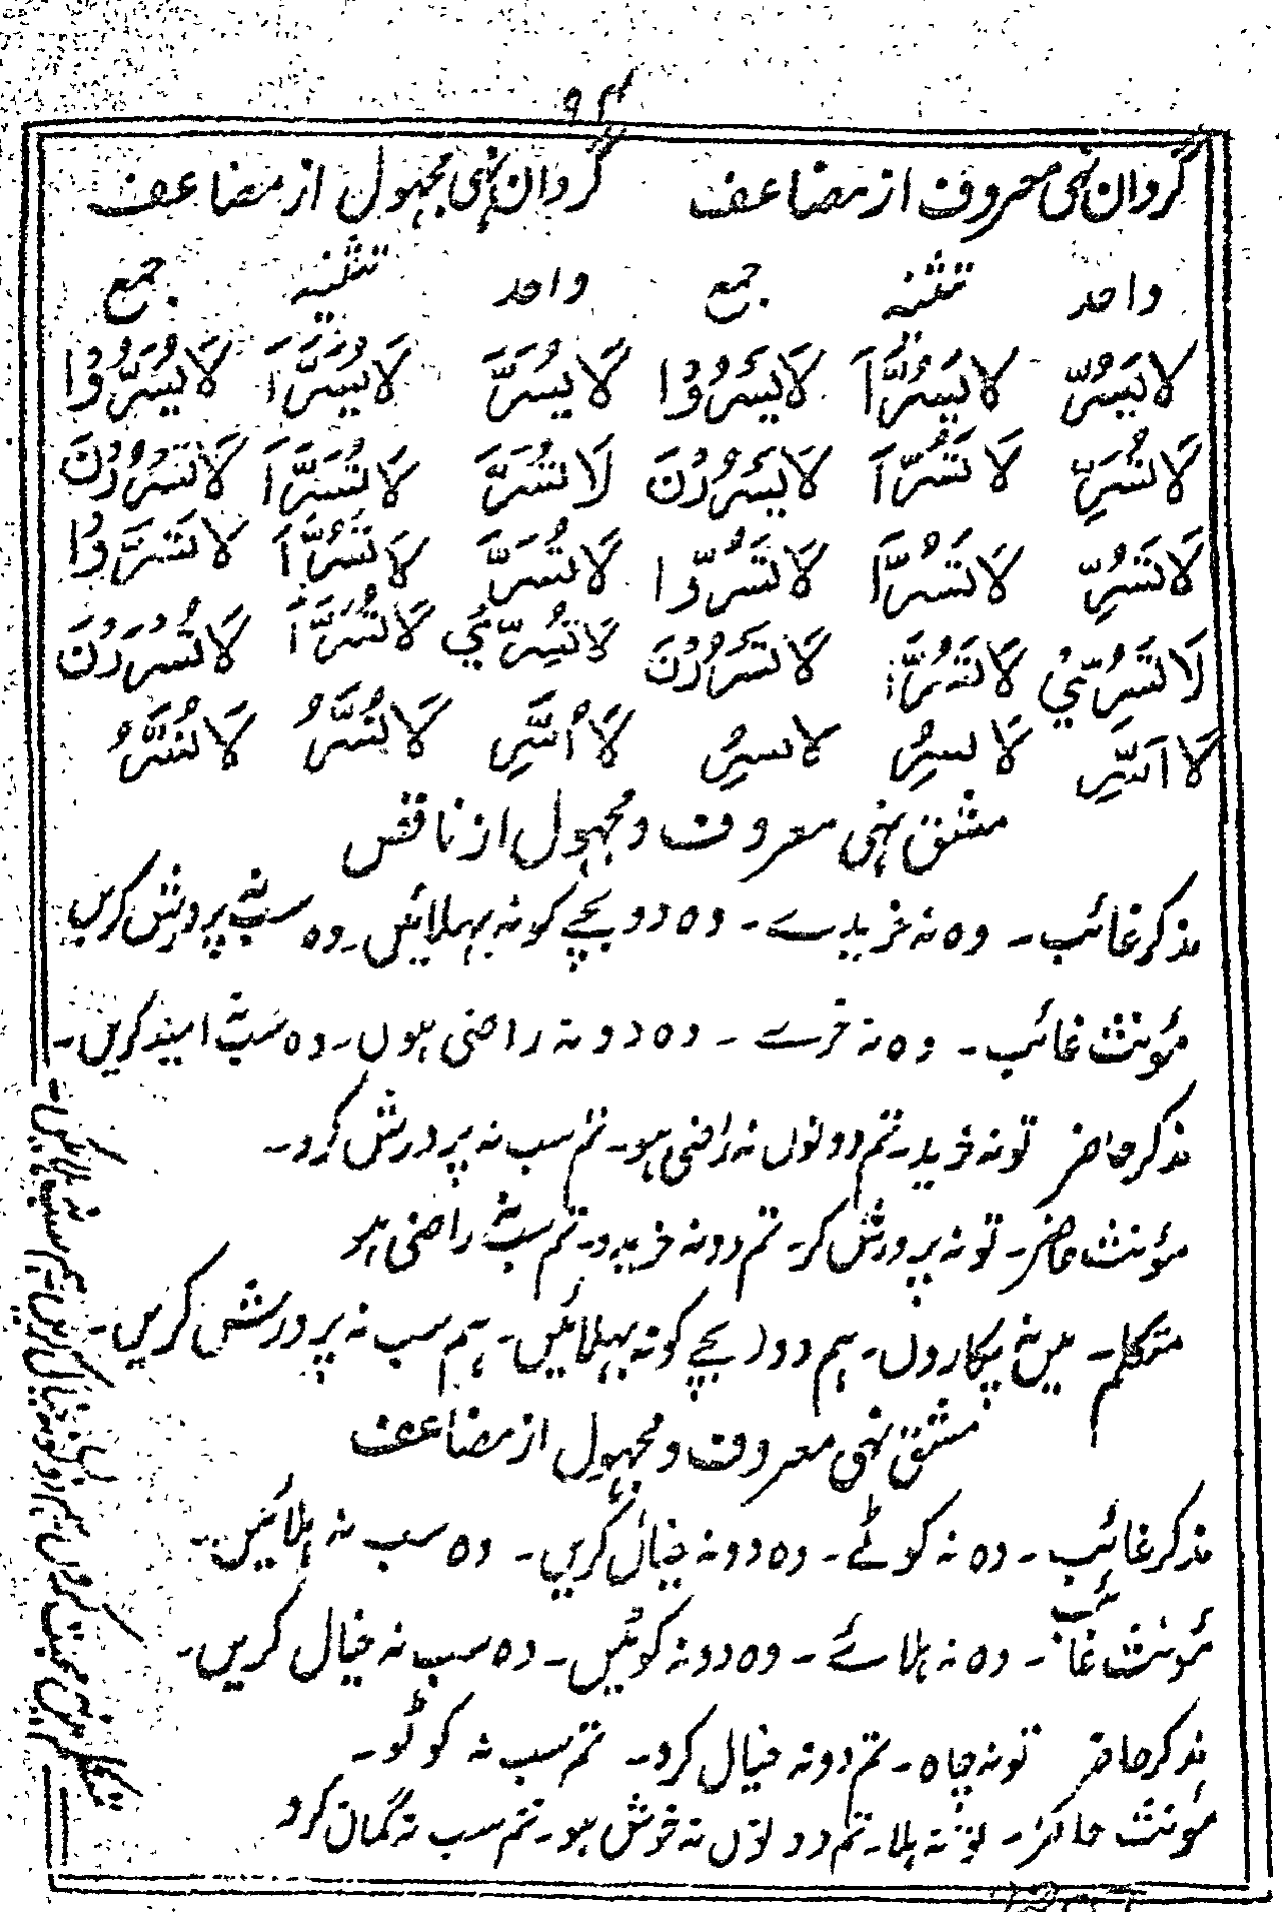 ۹۴
گردان نہی معروف از مضاعف گردان نہی مجہول از مضاعف
واحد تثنیہ جمع واحد تثنیہ جمع
لایَسُرّ لایَسُرَّا لَایَسُرُّوْا لَایُسَرَّ لَایُسَرَّا لَایُسَرُّوْا
لَاتَسُرّ لَاتَسُرَّا لَایَسْرُرْنَ لَاتُسَرَّ لَاتُسَرَّا لَاتُسْرَرْنَ
لَاتَسُرّ لَاتَسُرَّا لَاتَسُرّوا لَاتُسَرَّ لَاتُسَرَّا لَاتُسَرَّوْا
لَاتَسُرِّیْ لَاتَسُرَّا لَاتَسْرُرْنَ لَاتُسَرِّیْ لَاتُسَرَّا لَاتُسْرَرْنَ
لَااَسُرِّ لَانسرُّ لانسرُّ لَااُسَرِّ لَانُسَرُّ لَانُسَرُّ
مشق نہی معروف و مجہول از ناقص
مذکر غائب۔ وہ نہ خریدے۔ وہ دو بچے کو نہ بہلائیں۔ وہ سب نہ پرورش کریں
مؤنث غائب۔ وہ نہ خرے۔ وہ دو نہ راضی ہوں۔ وہ سب نہ امید کریں۔
مذکر حاضر تو نہ خرید۔ تم دونوں نہ راضی ہو۔ تم سب نہ پرورش کرو۔
مؤنث حاضر۔ تو نہ پرورش کر۔ تم دو نہ خریدو۔ تم سب نہ راضی ہو
متکلم۔ میں نہ پکاروں۔ ہم دو بچے کو نہ بہلائیں۔ ہم سب نہ پرورش کریں۔
مشق نہی معروف و مجہول از مضاعف
مذکر غائب۔ وہ نہ کوٹے۔ وہ دو نہ خیال کریں۔ وہ سب نہ ہلائیں۔
مؤنث غائب۔ وہ نہ ہلائے۔ وہ دو نہ کوٹیں۔ وہ سب نہ خیال کریں۔
مذکر حاضر تو نہ چاہ۔ تم دو نہ خیال کرو۔ تم سب نہ کوٹو۔
مؤنث حاضر۔ تو نہ ہلا۔ تم دونوں نہ خوش ہو۔ تم سب نہ گمان کرو
متکلم میں نہ محبت کروں۔ ہم دو نہ خیال کریں۔ ہم سب نہ ہلائیں۔